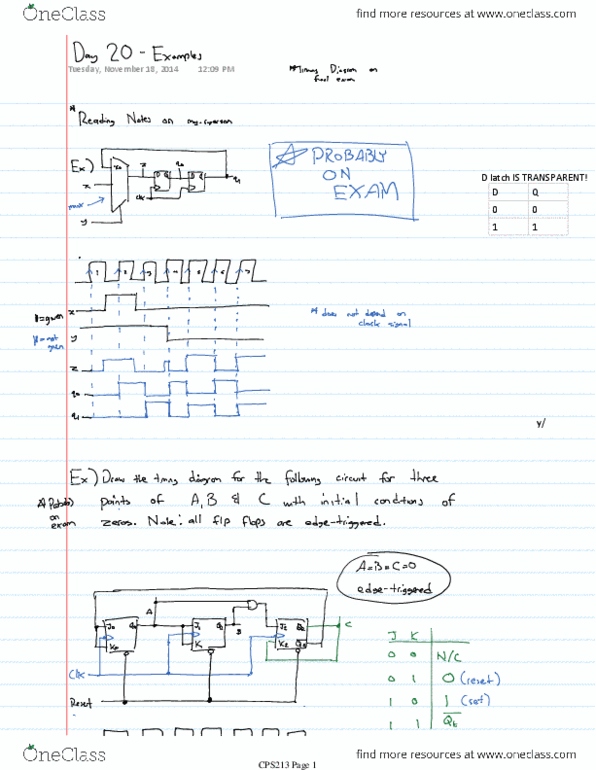 OneClass
find more resources at www.oneclass.com
Day 20 - Examples
Tuesday, November 18, 2014 12:09 PM
*Timing Diagram on
final exam
* Reading Notes on
Ex)
PROBABLY
ON
EXAM
x
mux
y
clk
z
q0
q1
D Q D Q
D latch IS TRANSPARENT!
D Q
0 0
1 1
1 2 3 4 5 6 7
B=given x
not given y
z
q0
q1
* does not depend on
clock signal
y/
Ex) Draw the timing diagram for the following circuit for three
* Probably on exam
points of A, B & C with initial conditions of
zeros. Note: all flip flops are edge-triggered.
A=B=C=0
edge-triggered
A
B
C
J0 Q0
K0
J1 Q1
K1
J2 Q2
K2 Q2
Clk
Reset
J K
0 0 N/C
0 1 0 (reset)
1 0 1 (set)
1 1
OneClass
CPS213 Page 1
find more resources at www.oneclass.com